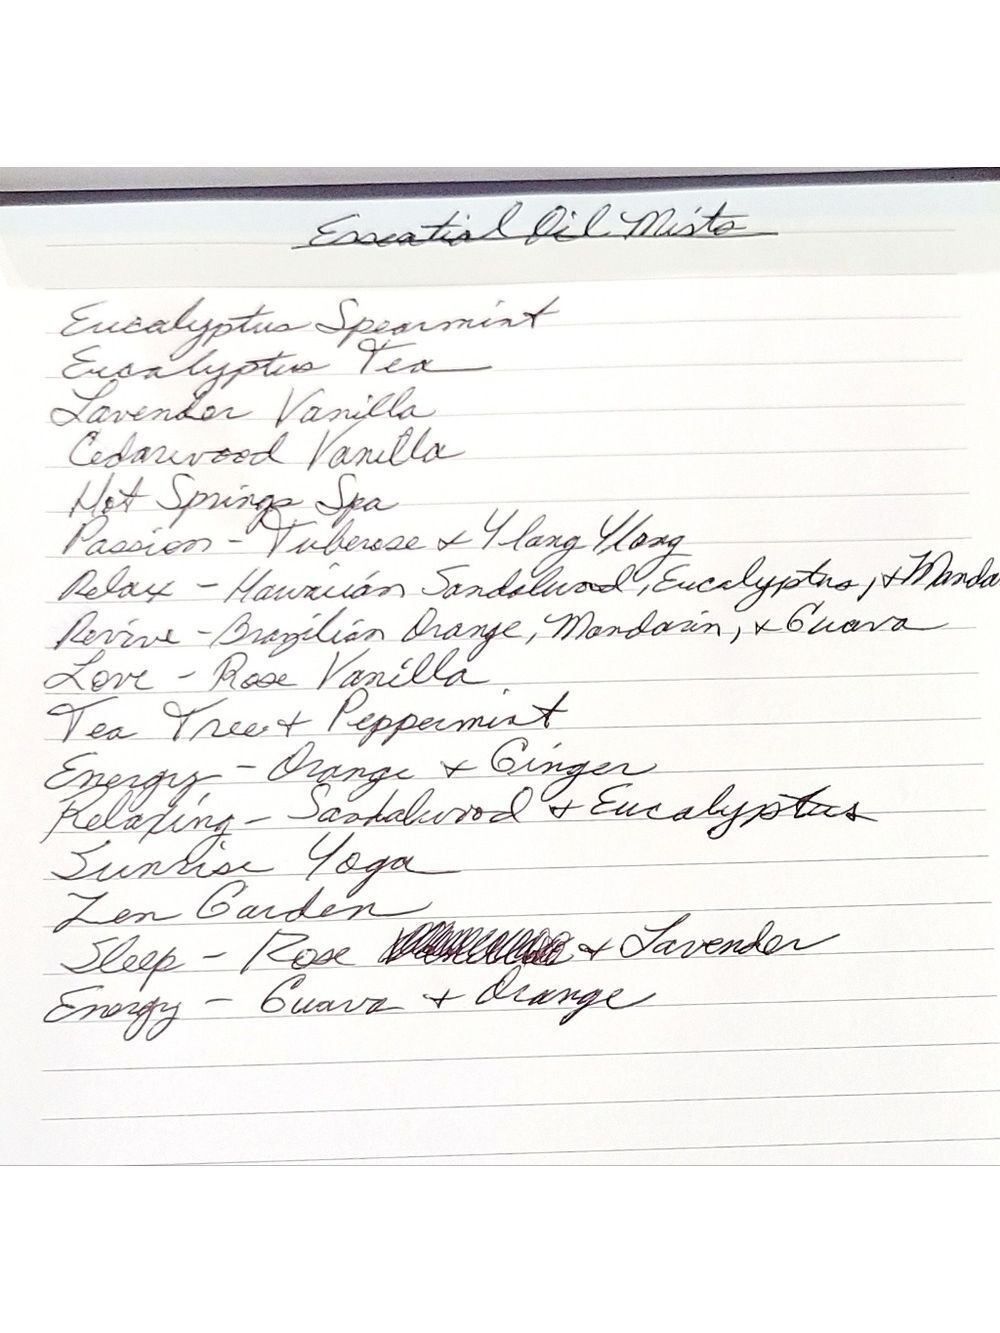 Essential Oil Mists
Eucalyptus Spearmint
Eucalyptus Tea
Lavender Vanilla
Cedarwood Vanilla
Hot Springs Spa
Passion - Tuberose & Ylang Ylang
Relax - Hawaiian Sandalwood, Eucalyptus, & Manda
Revive - Brazilian Orange, Mandarin, & Guava
Love - Rose Vanilla
Tea Tree & Peppermint
Energy - Orange & Ginger
Relaxing - Sandalwood & Eucalyptus
Sunrise Yoga
Zen Garden
Sleep - Rose & Lavender
Energy - Guava & Orange